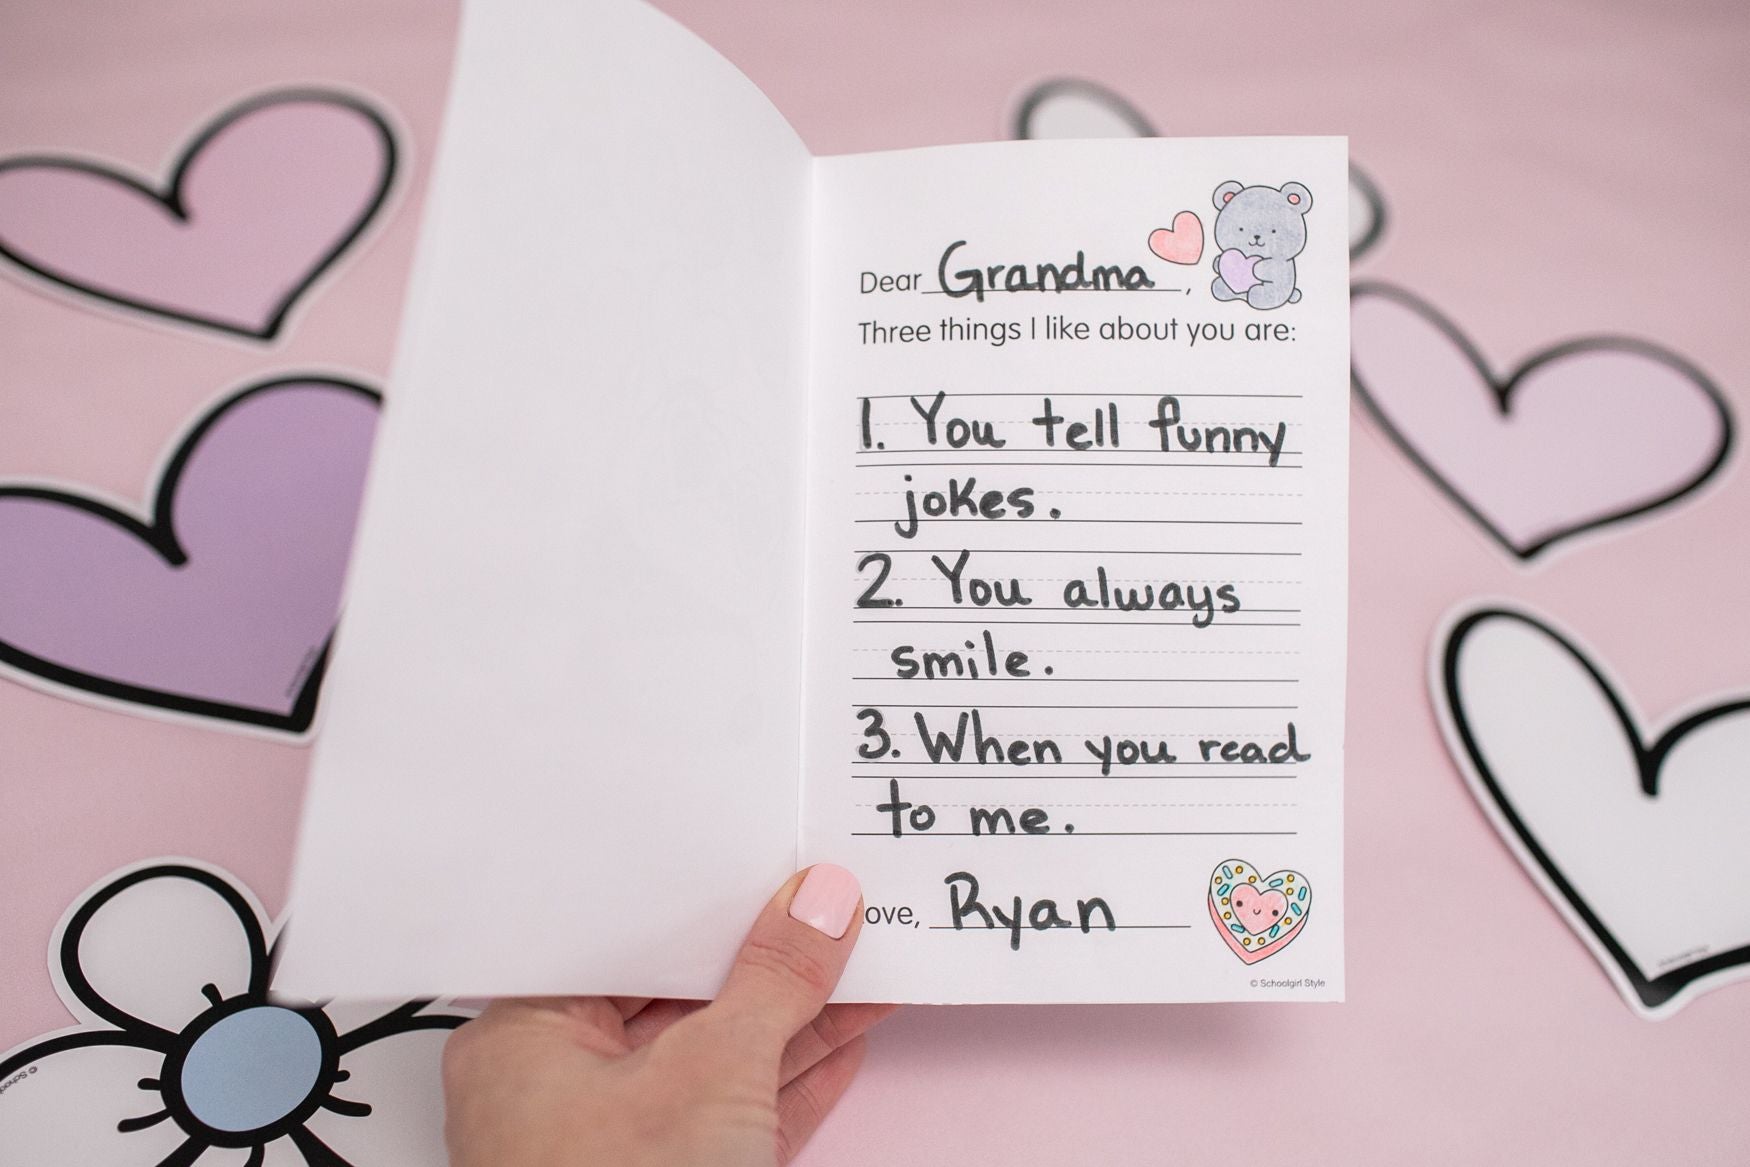 Dear Grandma,
Three things I like about you are:
1. You tell funny
jokes.
2. You always
smile.
3. When you read
to me.
ove, Ryan
© Schoolgirl Style